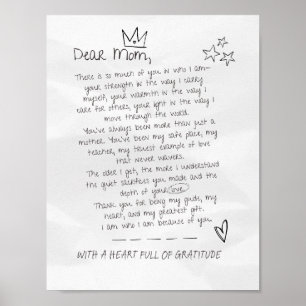 Dear Mom,
There is so much of you in who I am—
your strength in the way I carry
myself, your warmth in the way I
care for others, your light in the way I
move through the world.
You've always been more than just a
mother. You've been my safe place, my
teacher, my truest example of love
that never wavers.
The older I get, the more I understand
the quiet sacrifices you made and the
depth of your love.
Thank you for being my guide, my
heart, and my greatest gift.
I am who I am because of you.
WITH A HEART FULL OF GRATITUDE